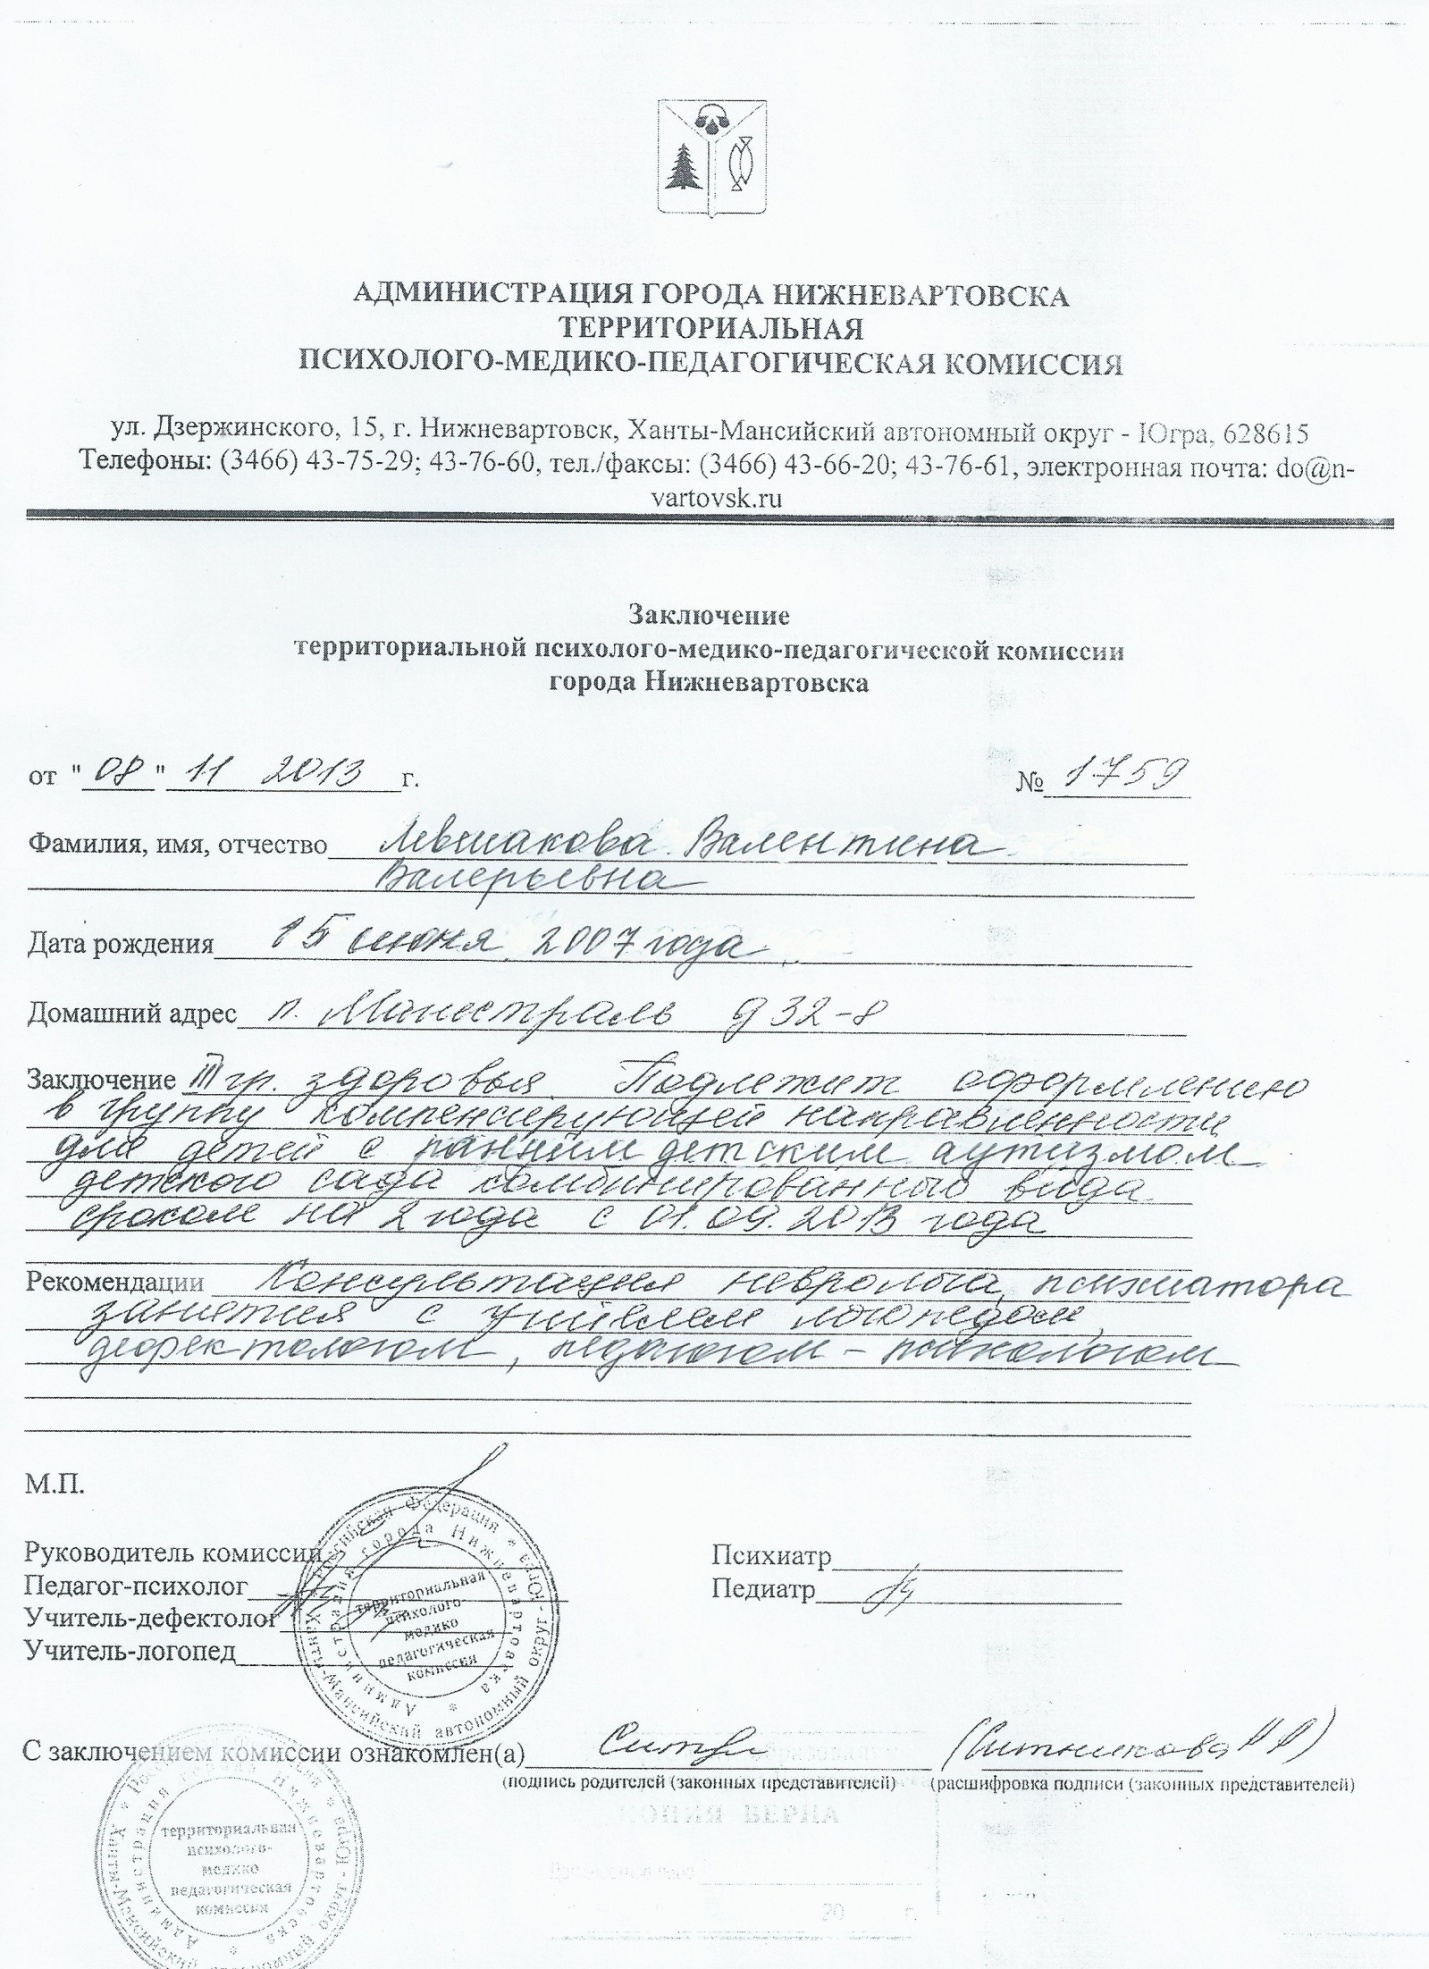 АДМИНИСТРАЦИЯ ГОРОДА НИЖНЕВАРТОВСКА
ТЕРРИТОРИАЛЬНАЯ
ПСИХОЛОГО-МЕДИКО-ПЕДАГОГИЧЕСКАЯ КОМИССИЯ
ул. Дзержинского, 15, г. Нижневартовск, Ханты-Мансийский автономный округ - Югра, 628615
Телефоны: (3466) 43-75-29; 43-76-60, тел./факсы: (3466) 43-66-20; 43-76-61, электронная почта: do@n-
vartovsk.ru
Заключение
территориальной психолого-медико-педагогической комиссии
города Нижневартовска
от "08" 11 2013 г. № 1759
Фамилия, имя, отчество Левшакова Валентина
Валерьевна
Дата рождения 15 июня 2007 года
Домашний адрес п. Магистраль д 32-8
Заключение III гр. здоровья. Подлежит оформлению
в группу компенсирующей направленности
для детей с ранним детским аутизмом
детского сада комбинированного вида
сроком на 2 года с 01.09.2013 года
Рекомендации Консультация невролога, психиатора
занятия с учителем логопедом,
дефектологом, педагогом-психологом
М.П.
Руководитель комиссии
Психиатр
Педагог-психолог
Педиатр
Учитель-дефектолог
Учитель-логопед
Российская Федерация * Ханты-Мансийский автономный округ - Югра
Администрация города Нижневартовска *
территориальная
психолого-
медико
педагогическая
комиссия
С заключением комиссии ознакомлен(а) (Ситникова
(подпись родителей (законных представителей) (расшифровка подписи (законных представителей)
территориальная
психолого-
медико
педагогическая
комиссия
КОПИЯ ВЕРНА
20 г.